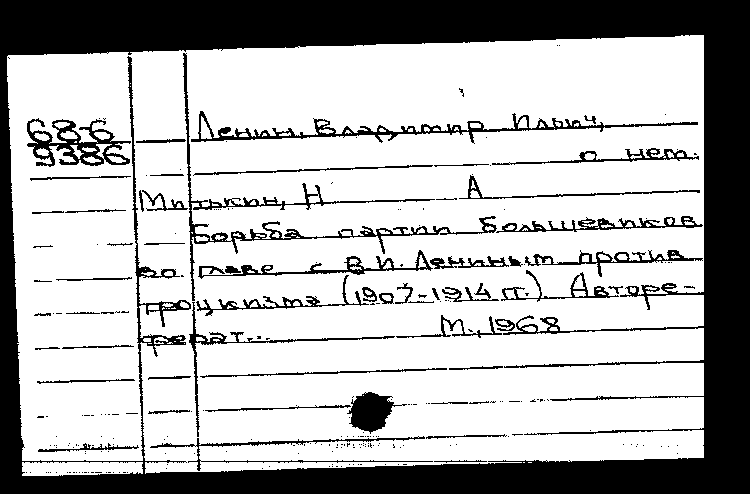 68-6
9386
Ленин, Владимир Ильич,
о нем.
Митькин, Н А
Борьба партии большевиков
во главе с В.И. Лениным против
троцкизма (1907-1914 гг.) Авторе-
ферат... М., 1968